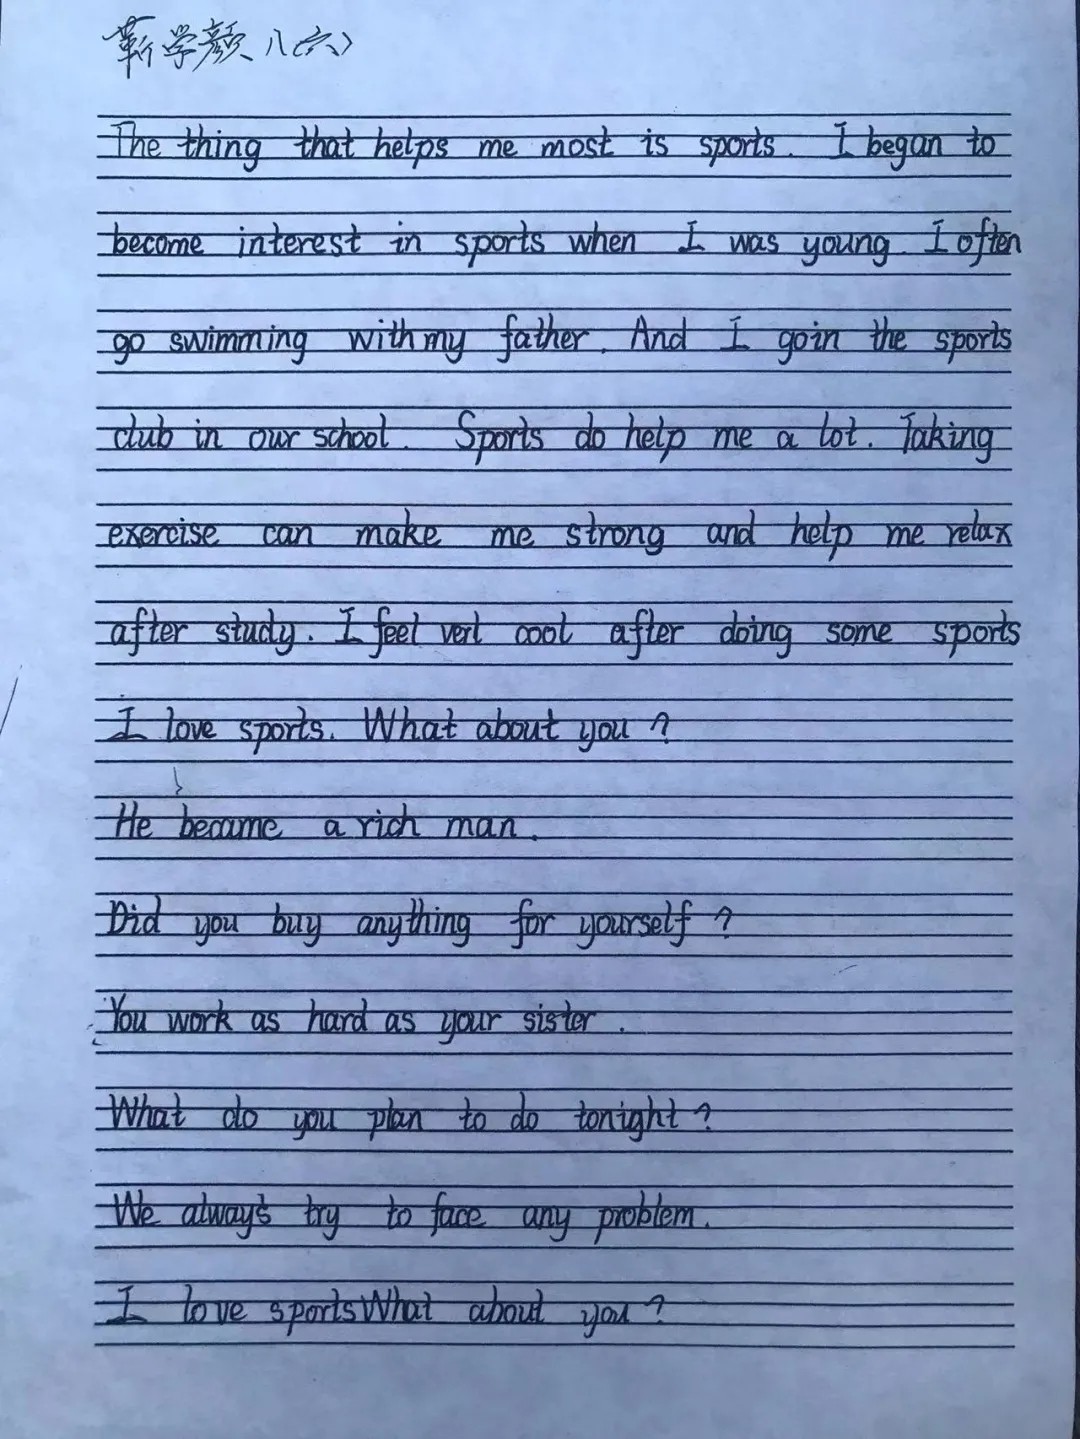 靳学颜 八(六)
The thing that helps me most is sports. I began to
become interest in sports when I was young. I often
go swimming with my father. And I goin the sports
club in our school. Sports do help me a lot. Taking
exercise can make me strong and help me relax
after study. I feel verl cool after doing some sports
I love sports. What about you?
He became a rich man.
Did you buy anything for yourself?
You work as hard as your sister.
What do you plan to do tonight?
We always try to face any problem.
I love sports What about you?